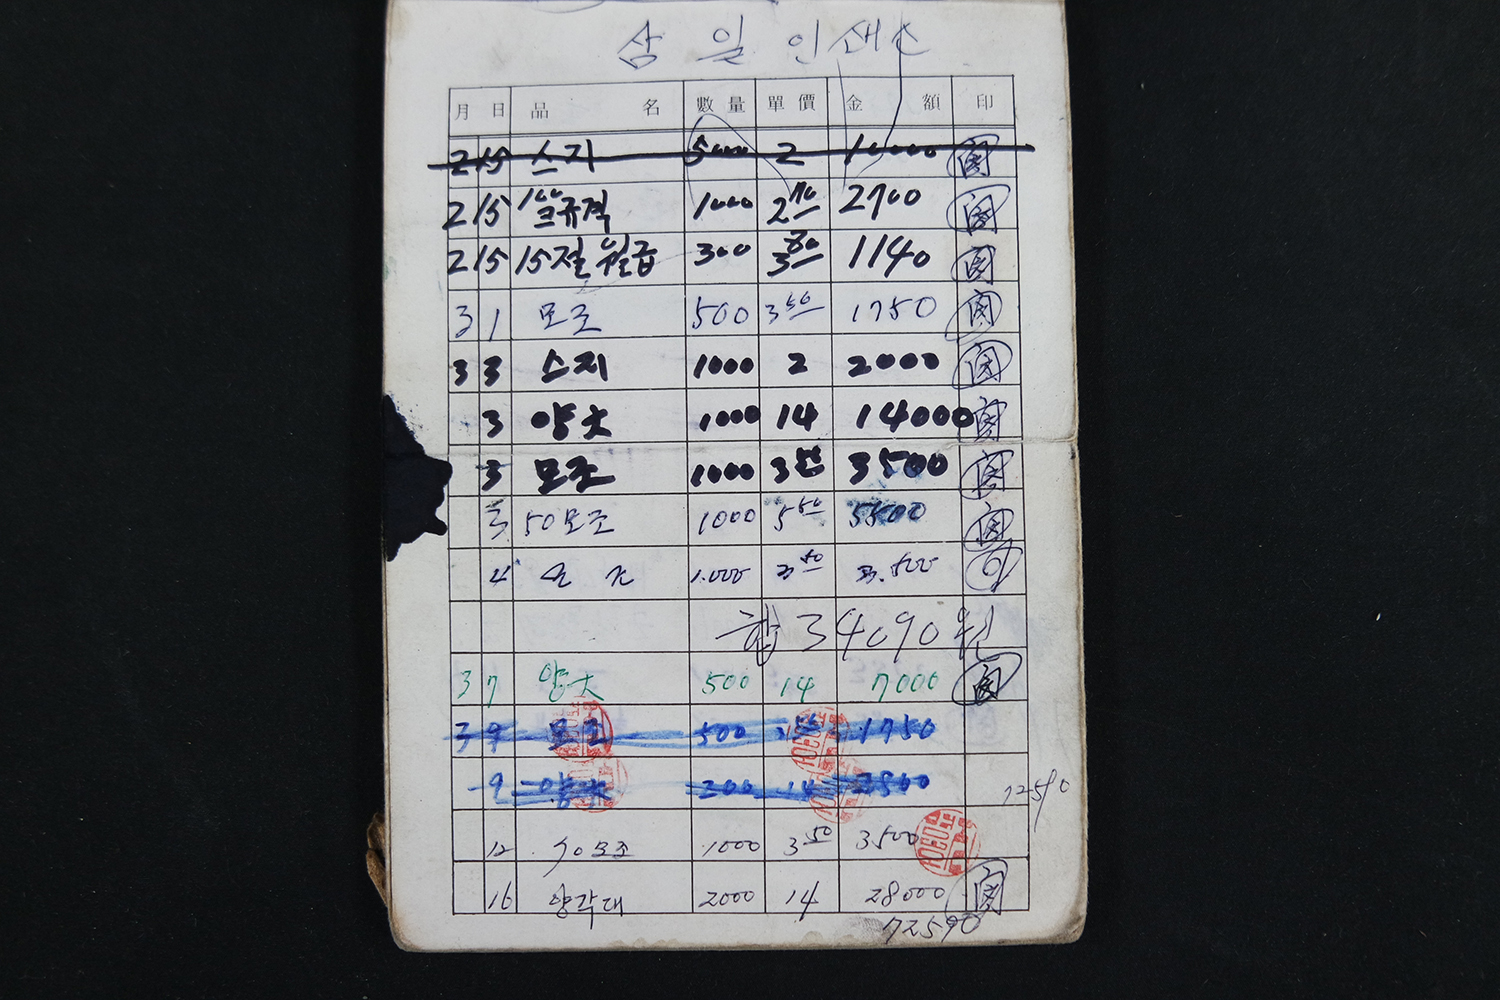 삼일인쇄소
月 日 品 名 數量 單價 金 額 印
2 15 스지 5000 2 10000
2 15 100 규격 1000 2 70 2700
2 15 15절 월급 300 3 80 1140
3 1 모조 500 3 50 1750
3 3 스지 1000 2 2000
3 양大 1000 14 14000
3 모조 1000 3 50 3500
3 50모조 1000 5 50 5500
4 1.000 3 50 3.500
합 34090원
3 7 양大 500 14 7000
3 9 모조 500 3 50 1750
9 양大 200 14 2800
12590
12 50모조 1000 3 50 3500
16 양각대 2000 14 28000
72590